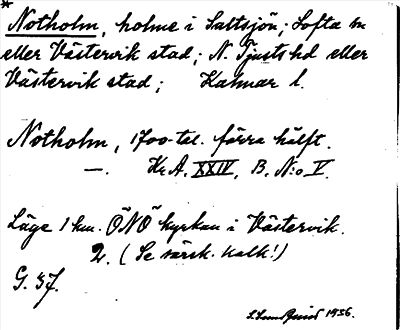 *
Notholm, holme i Saltsjön; Lofta sn
eller Västervik stad; N. Tjusts hd eller
Västervik stad; Kalmar l.
Notholm, 1700-tal. förra hälft.
—. Kr. A. XXIV, B. N:o V.
Läge 1 km. ÖNÖ kyrkan i Västervik.
2. (Se särsk. kalk!)
G. 37.
1936.